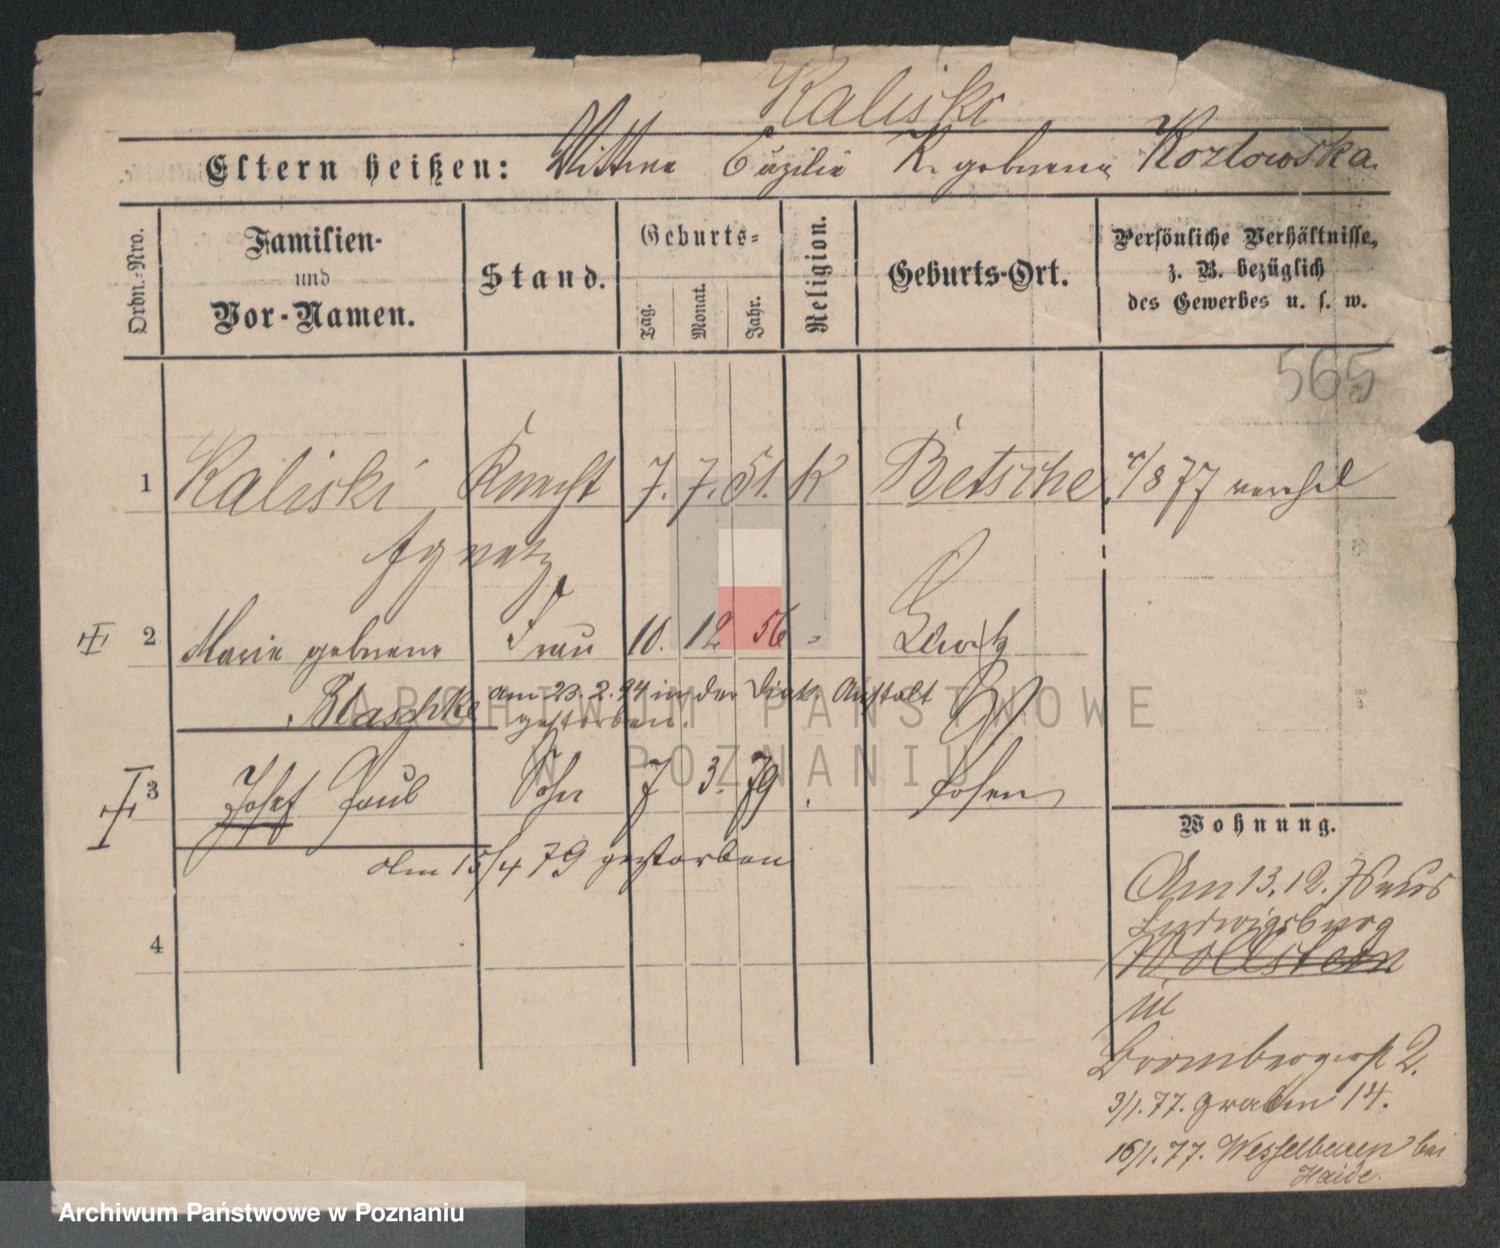 Kaliski
Eltern heißen: Wittwe Cäzilie K. geborene Kozlowska.
Ordn.-Nro.
Familien-
und
Vor-Namen.
Stand.
Geburts-
Tag.
Monat.
Jahr.
Religion.
Geburts-Ort.
Persönliche Verhältnisse,
z. B. bezüglich
des Gewerbes u. s. w.
565
1 Kaliski Knecht 7. 7. 51. K Betsche /8 77 verehel
Ignatz
2 Marie geborene Frau 10. 12 56 "
Blaschke am 23. 2. 94 in der Diak. Anstalt
gestorben.
3 Josef Paul Sohn 7 3. 79 Posen
Am 15/4 79 gestorben
4
Wohnung.
Am 13. 12. 76 aus
Ludwigsburg
Wollstein
in
Brombergerst 2.
3/1. 77. Graben 14.
16/1. 77. Wesselburen bei
Haide.
ARCHIWUM PAŃSTWOWE
W POZNANIU
Archiwum Państwowe w Poznaniu